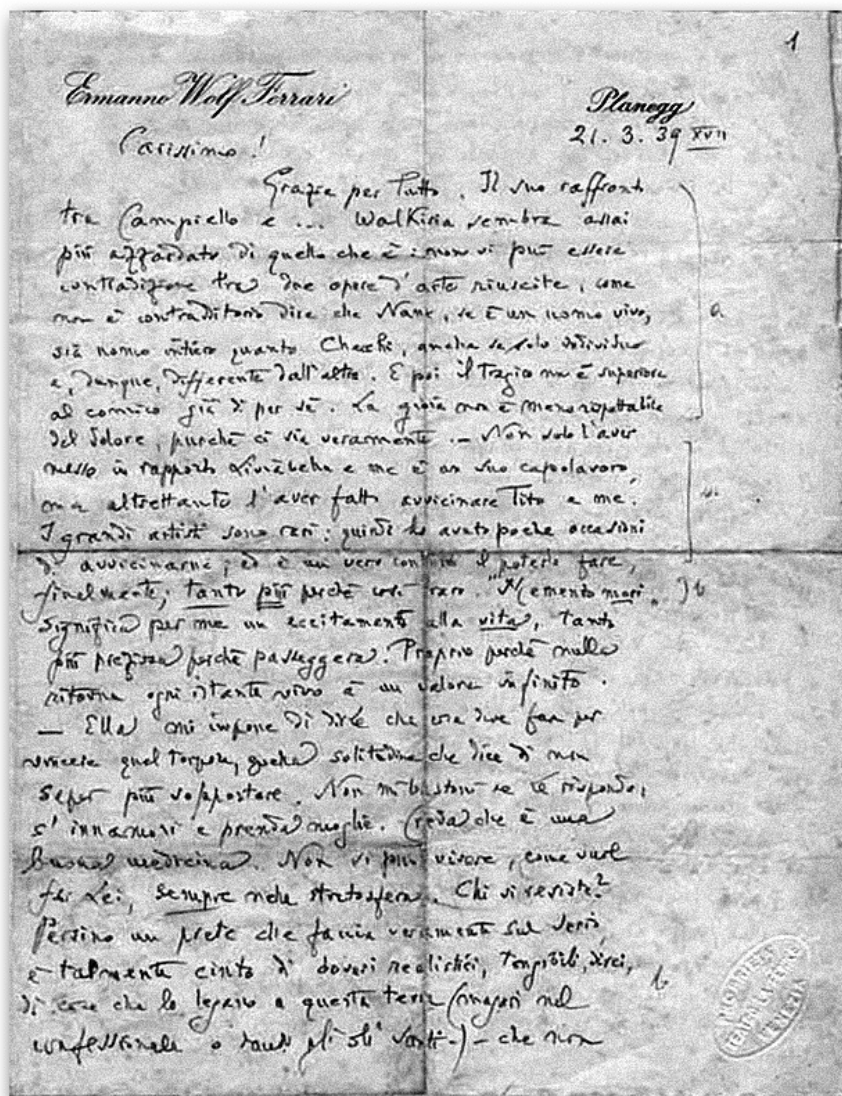 1
Ermanno Wolf Ferrari
Planegg
21. 3. 39 XVII
Carissimo!
Grazie per tutto. Il suo raffronto
tra Campiello e ... Walkiria sembra assai
più azzardato di quello che è: non vi può essere
contradizione tra due opere d'arte riuscite, come
non è contradditorio dire che Nane, se è un uomo vivo,
sia uomo intiero quanto Checchi, anche se solo individuo
e, dunque, differente dall'altro. E poi il tragico non è superiore
al comico già di per sé. La gioia non è meno rispettabile
del dolore, purché ci sia veramente. — Non solo l'aver
messo in rapporto e me è un suo capolavoro,
ma altrettanto l'aver fatto avvicinare Tito a me.
I grandi artisti sono rari; quindi ho avuto poche occasioni
di avvicinarne; ed è un vero conforto il poterlo fare,
finalmente; tanto più perché così raro. "Memento mori"
significa per me un eccitamento alla vita, tanto
più preziosa perché passeggera. Proprio perché nulla
ritorna ogni istante vivo è un valore infinito.
— Ella mi impone di dirle che cosa deve fare per
vincere quel torpore, quella solitudine che dice di non
saper più sopportare. Non mi bastoni se le rispondo:
s'innamori e prenda moglie. Creda che è una
buona medicina. Non si può vivere, come vuol
far Lei, sempre nella stratosfera. Chi vi resiste?
Persino un prete che faccia veramente sul serio
è talmente cinto di doveri realistici, tangibili,
di cose che lo legano a questa terra (magari nel
confessionale o dando gli olî santi -) - che non
a
b
b
TEATRO LA FENICE
VENEZIA